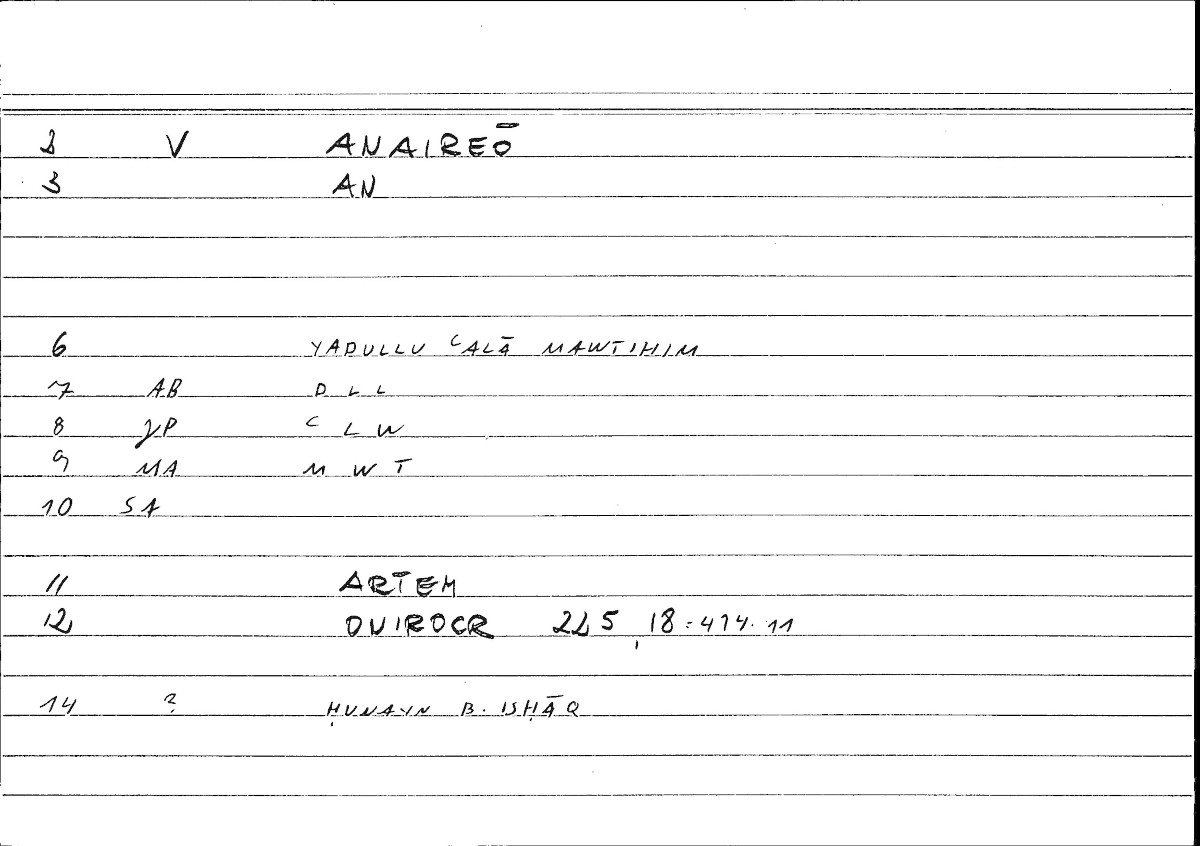 2 V ANAIREŌ
3 AN
6 YADULLU ʿALĀ MAWTIHIM
7 AB D L L
8 JP ʿ L W
9 MA M W T
10 SA
11 ARTEM
12 ONIROCR 225, 18 = 414. 11
14 ? ḤUNAYN B. ISḤĀQ